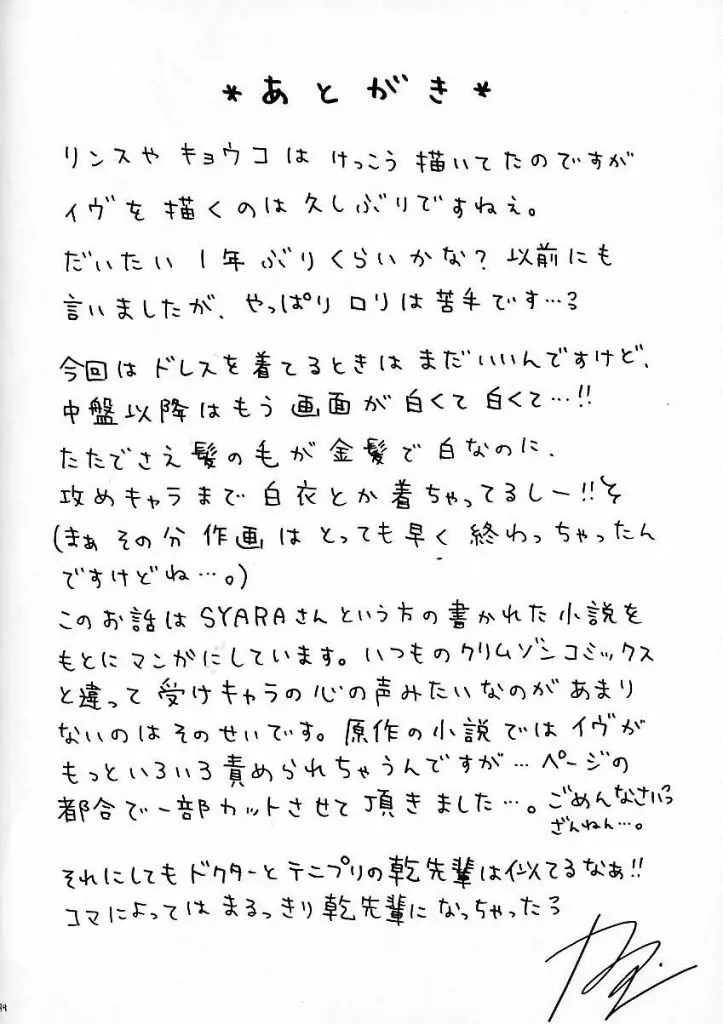 *あとがき*
リンスや キョウコは けっこう 描いてたのですが
イヴを 描くのは 久しぶりですねぇ。
だいたい 1年 ぶりくらいかな? 以前にも
言いましたが、やっぱり ロリは苦手です…ろ
今回は ドレスを着てるときは まだいいんですけど、
中盤以降はもう 画面が 白くて 白くて…!!
たたでさえ 髪の毛が 金髪で 白なのに、
攻めキャラまで 白衣とか 着ちゃってるしー!!
(まぁ その分 作画は とっても早く 終わっちゃったん
ですけどね…。)
このお話は SYARAさん という方の書かれた小説を
もとに マンガにしています。いつものクリムゾンコミックス
と違って 受けキャラの心の声みたいなのが あまり
ないのは そのせいです。原作の小説では イヴが
もっといろいろ責められちゃうんですが… ページの
都合で一部カットさせて頂きました…。ごめんなさいっ
ざんねん…。
それにしても ドクターと テニプリの乾先輩は似てるなぁ!!
コマによっては まるっきり 乾先輩に なっちゃったろ
94